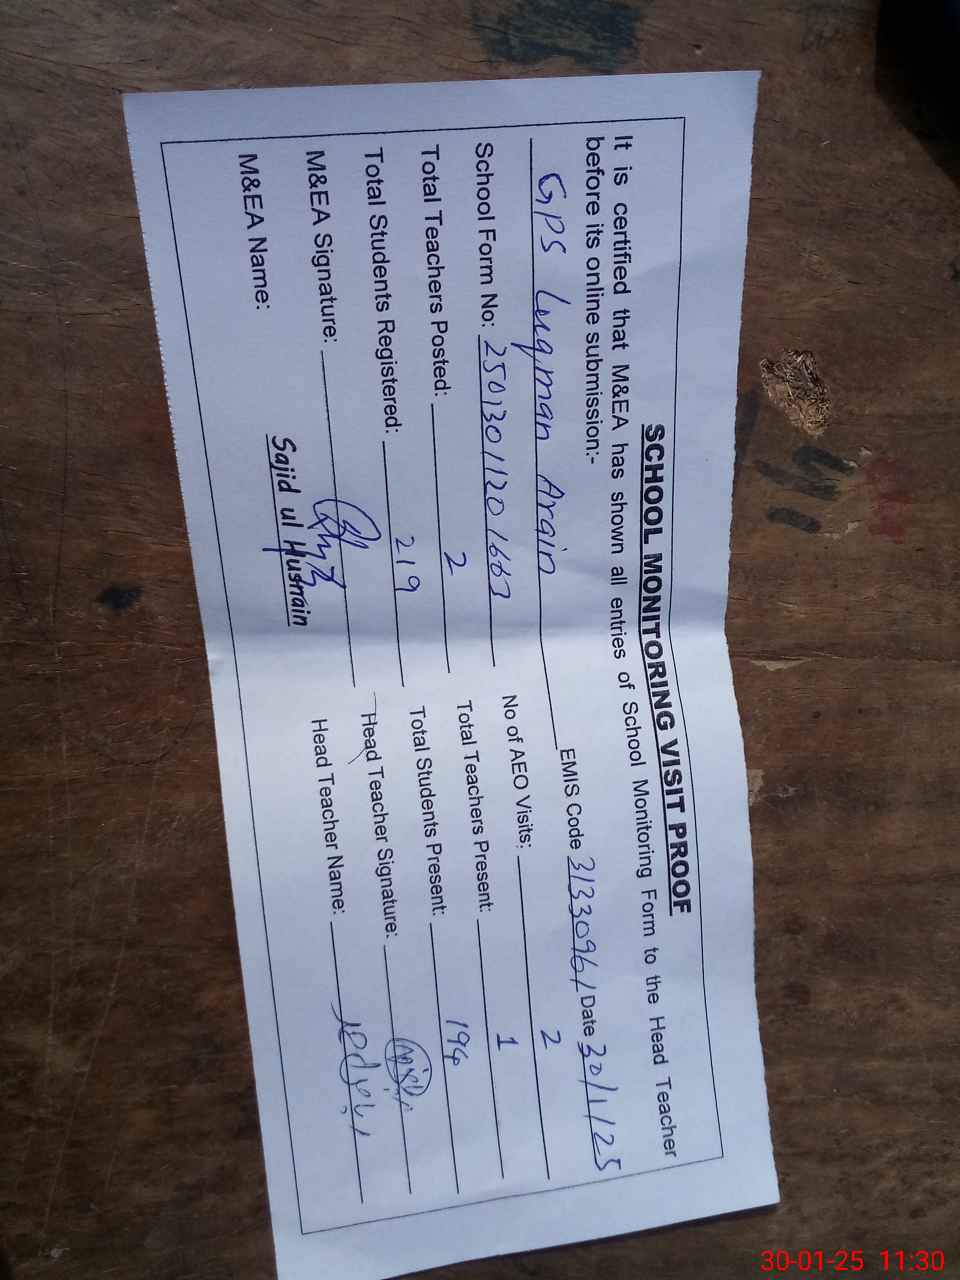 SCHOOL MONITORING VISIT PROOF
It is certified that M&EA has shown all entries of School Monitoring Form to the Head Teacher
before its online submission:-
GPS Luqman Arain EMIS Code 31330961 Date 30/1/25
School Form No: 25013011201663 No of AEO Visits: 2
Total Teachers Posted: 2 Total Teachers Present: 1
Total Students Registered: 219 Total Students Present: 194
M&EA Signature: Head Teacher Signature:
M&EA Name: Sajid ul Husnain Head Teacher Name:
30-01-25 11:30